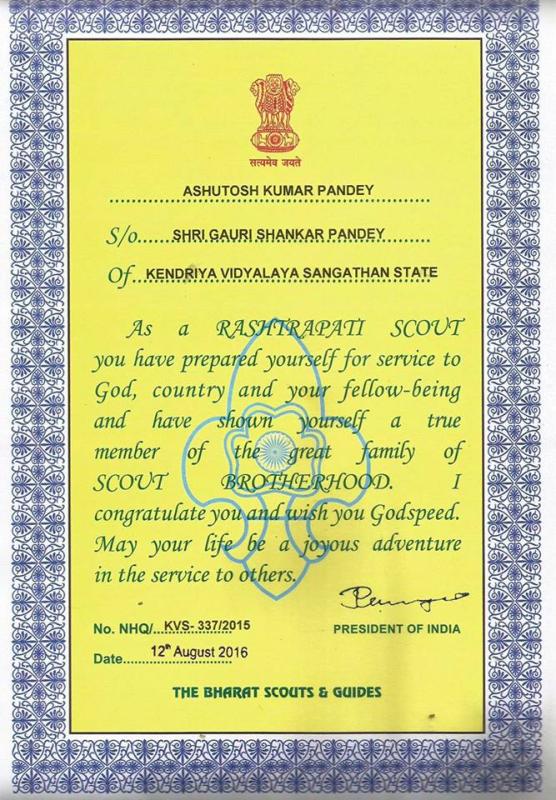 सत्यमेव जयते
ASHUTOSH KUMAR PANDEY
S/o. SHRI GAURI SHANKAR PANDEY
Of KENDRIYA VIDYALAYA SANGATHAN STATE
As a RASHTRAPATI SCOUT
you have prepared yourself for service to
God, country and your fellow-being
and have shown yourself a true
member of the great family of
SCOUT BROTHERHOOD. I
congratulate you and wish you Godspeed.
May your life be a joyous adventure
in the service to others.
No. NHQ/ KVS- 337/2015
PRESIDENT OF INDIA
Date 12th August 2016
THE BHARAT SCOUTS & GUIDES